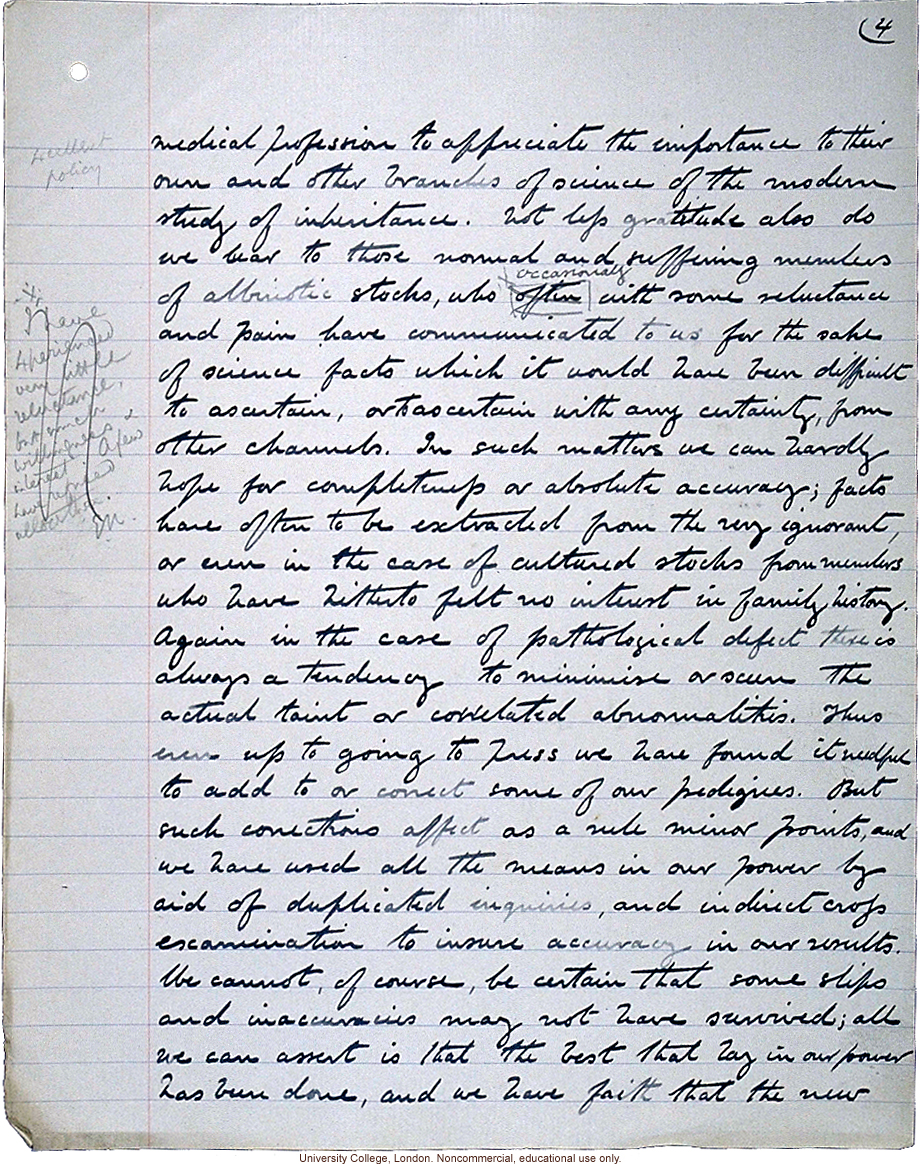 (4
medical profession to appreciate the importance to their
own and other branches of science of the modern
study of inheritance. Not less gratitude also do
we bear to those normal and suffering members
occasionally
of albinotic stocks, who often with some reluctance
and pain have communicated to us for the sake
of science facts which it would have been difficult
to ascertain, or to ascertain with any certainty, from
other channels. In such matters we can hardly
hope for completeness or absolute accuracy; facts
have often to be extracted from the very ignorant,
or even in the case of cultured stocks from members
who have hitherto felt no interest in family history.
Again in the case of pathological defect there is
always a tendency to minimise or screen the
actual taint or correlated abnormalities. Thus
even up to going to press we have found it needful
to add to or correct some of our pedigrees. But
such corrections affect as a rule minor points, and
we have used all the means in our power by
aid of duplicated inquiries, and indirect cross
examination to insure accuracy in our results.
We cannot, of course, be certain that some slips
and inaccuracies may not have survived; all
we can assert is that the best that lay in our power
has been done, and we have faith that the new
Excellent
policy
I have
experienced
very little
reluctance,
but much
willingness &
interest. A few
have refused
altogether.
University College, London. Noncommercial, educational use only.